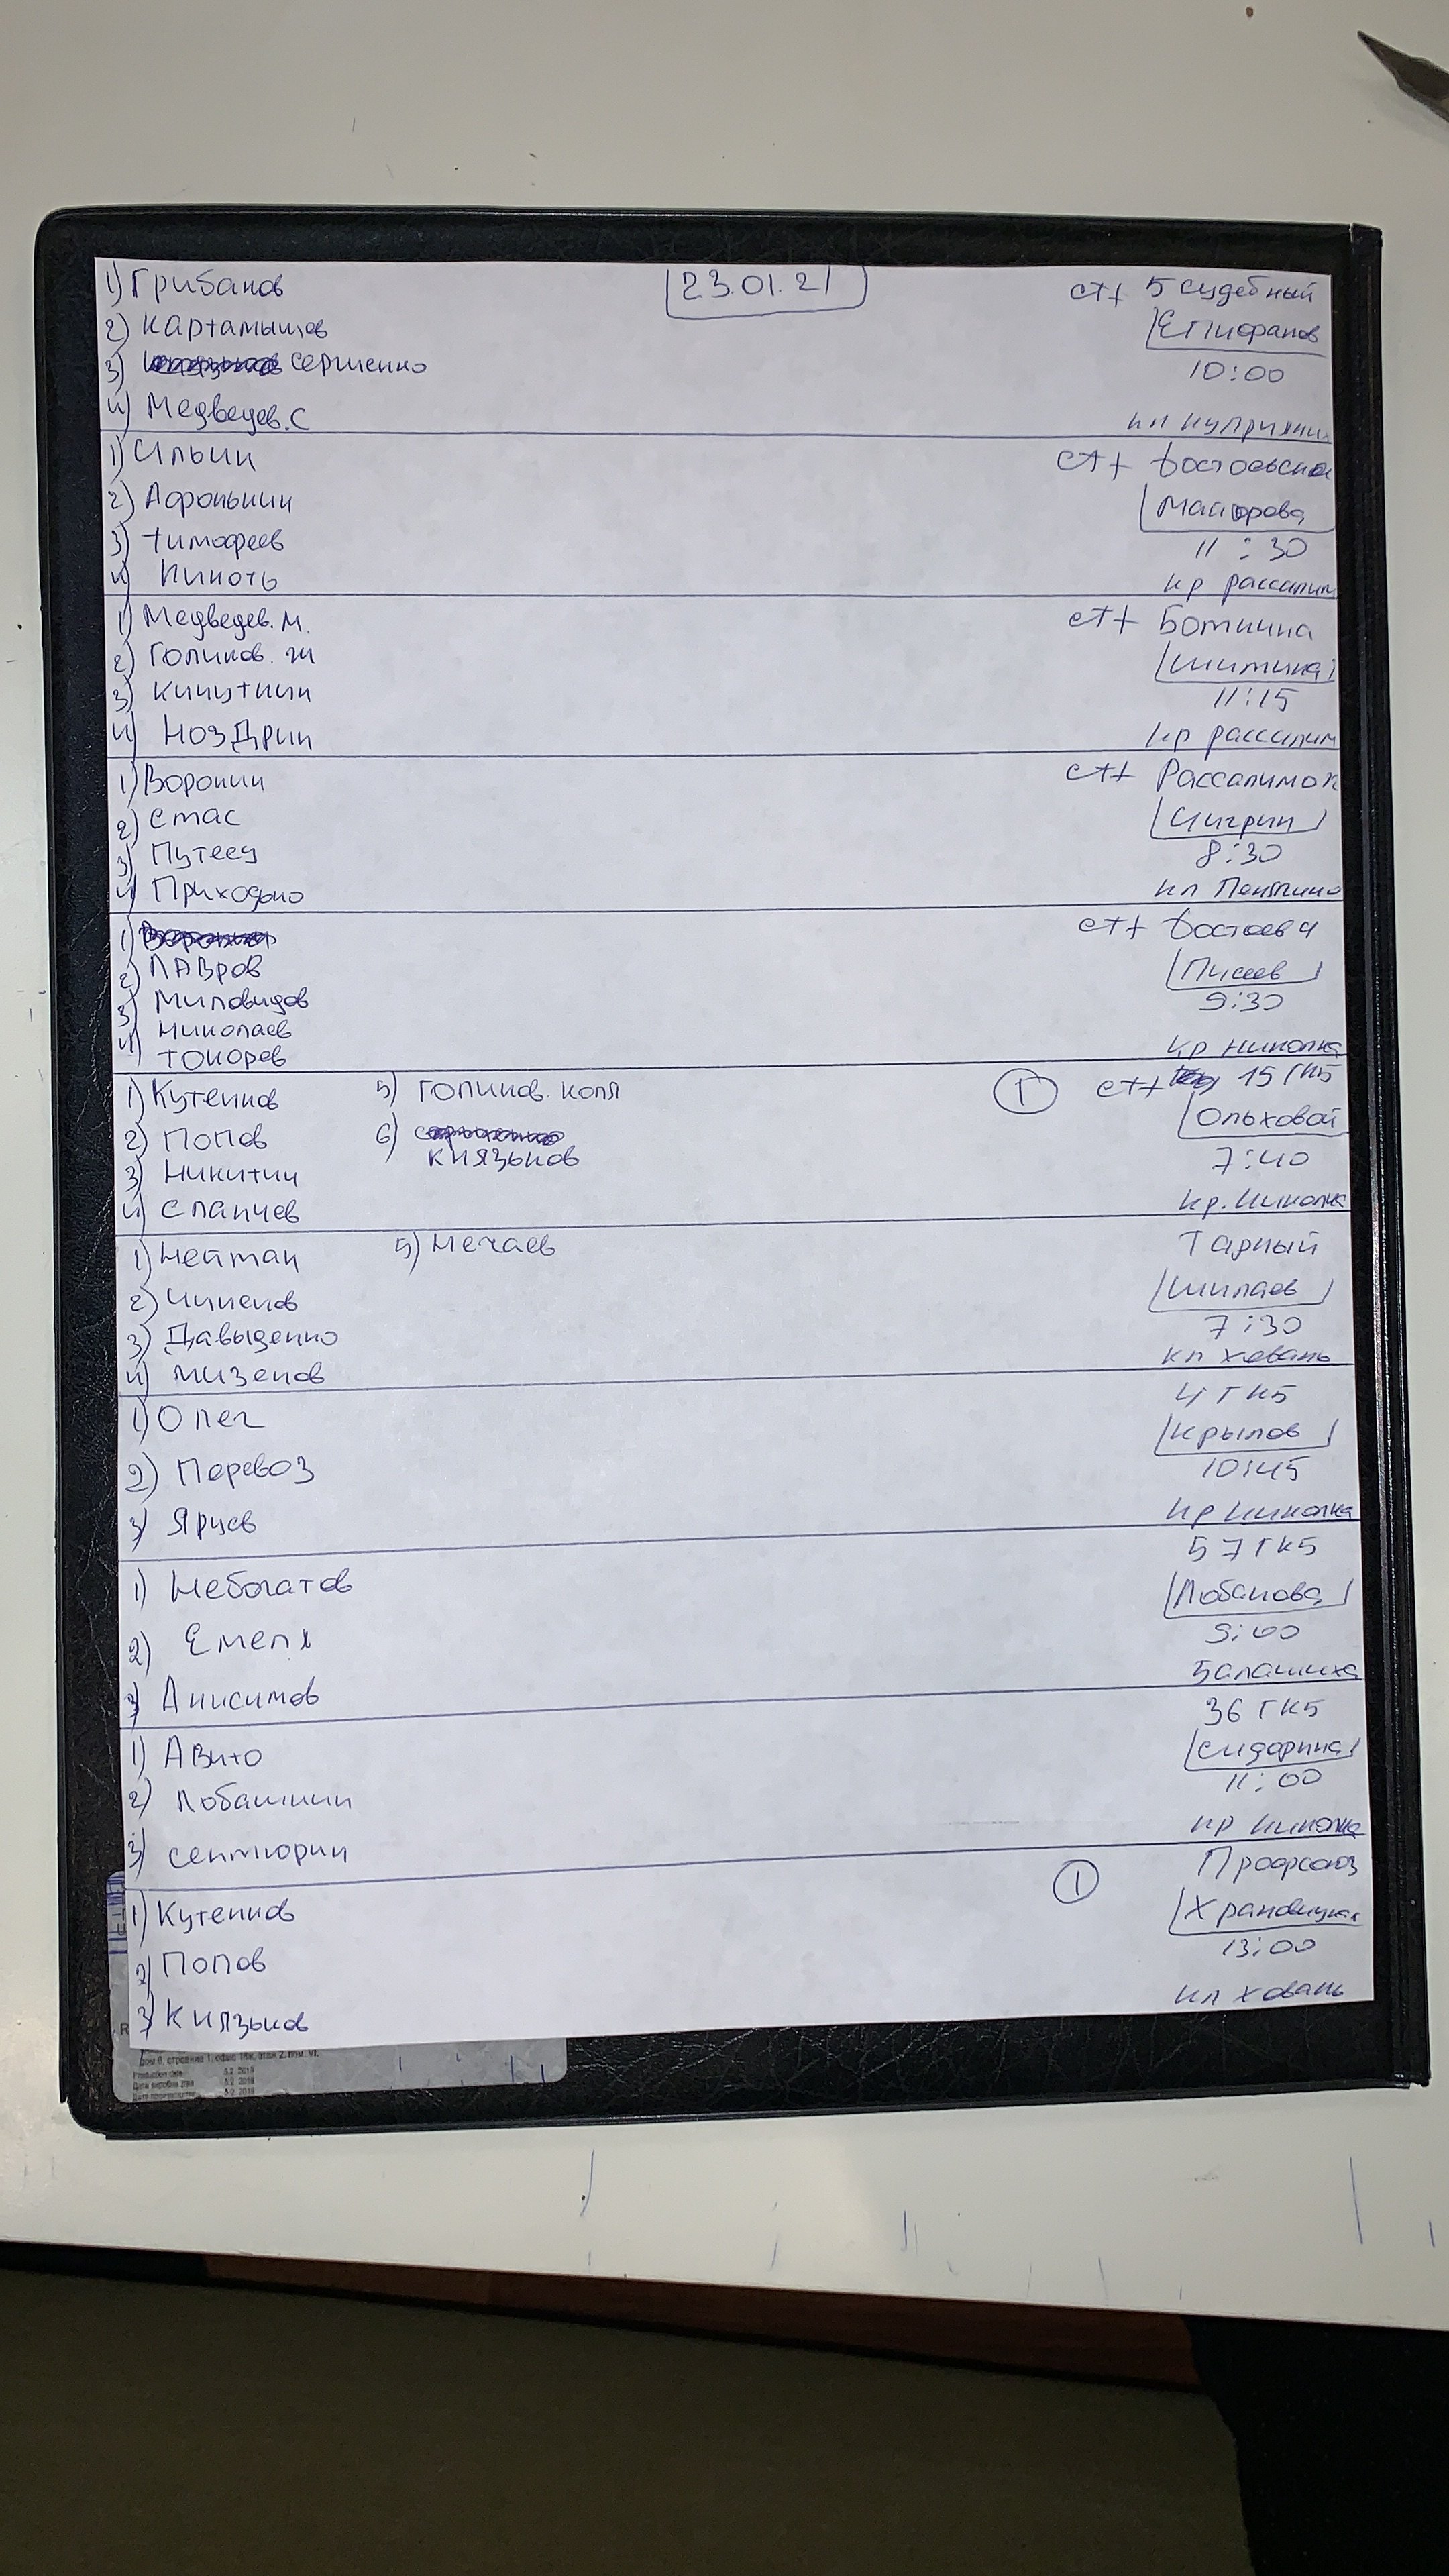 23.01.21
1) Грибанов
2) Картамышов
3) Сергиенко
4) Медведев.С
ст+ 5 судебный
Епифанов
10:00
кл куприянин
1) Ильин
2) Афонькин
3) Тимофеев
4) Кикоть
ст+ Достоевском
Майорова
11:30
кр рассалим
1) Медведев.М.
2) Голиков. Ж
3) Кичуткин
4) Ноздрин
ст+ Боткина
Шитика
11:15
кр рассалим
1) Воронин
2) Стас
3) Путеец
4) Приходько
ст+ Рассалимом
Чигрин
8:30
кл Пенягино
1)
2) Лавров
3) Миловидов
4) Николаев
Токорев
ст+ Достоевч
9:30
кр николка
1) Кутенков
2) Попов
3) Никитин
4) Сланчев
5) Голиков. Коля
6)
Князьков
1
ст+ 15 ГКБ
Ольховой
7:40
кр. Николка
1) Нейман
2) Чикенов
3) Давыденко
4) Мизенов
5) Нечаев
Тарный
Шилаев
7:30
кл ховань
1) Олег
2) Перевоз
3) Ярцев
4 ГКБ
Крылов
10:45
кр николка
1) Небогатов
2) Емеля
3) Анисимов
57 ГКБ
Лобанова
9:00
Балашиха
1) Авито
2) Лобашкин
3) Сентюрин
36 ГКБ
Сидоркина
11:00
кр николка
1) Кутенков
2) Попов
3) Князьков
1
Профсоюз
Храновицкая
13:00
кл ховань